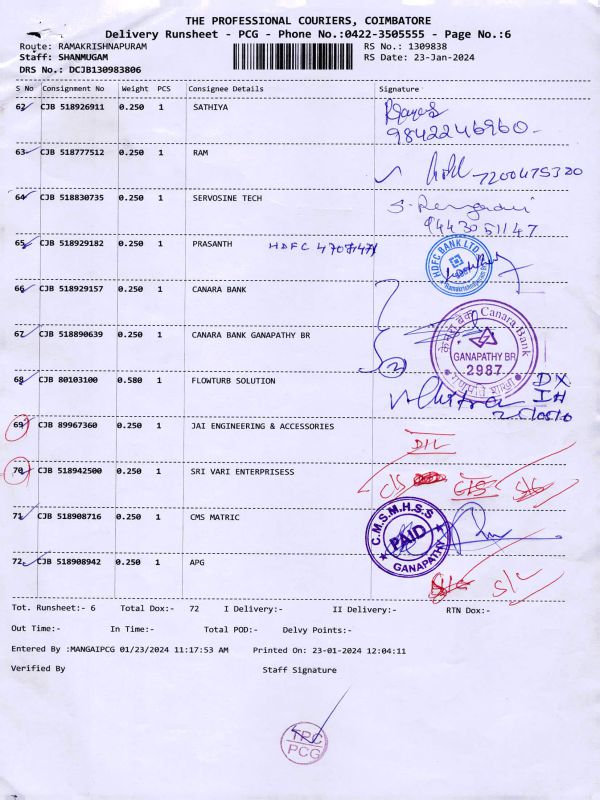 THE PROFESSIONAL COURIERS, COIMBATORE
Delivery Runsheet - PCG - Phone No.:0422-3505555 - Page No.:6
Route: RAMAKRISHNAPURAM RS No.: 1309838
Staff: SHANMUGAM RS Date: 23-Jan-2024
DRS No.: DCJB130983806
S No Consignment No Weight PCS Consignee Details Signature
62 CJB 518926911 0.250 1 SATHIYA
9842246960-
63 CJB 518777512 0.250 1 RAM
7200475320
64 CJB 518830735 0.250 1 SERVOSINE TECH
9443051147
65 CJB 518929182 0.250 1 PRASANTH HDFC
HDFC BANK LTD
66 CJB 518929157 0.250 1 CANARA BANK
67 CJB 518890639 0.250 1 CANARA BANK GANAPATHY BR
केनरा बैंक Canara Bank
GANAPATHY BR
2987
2
68 CJB 80103100 0.580 1 FLOWTURB SOLUTION
69 CJB 89967360 0.250 1 JAI ENGINEERING & ACCESSORIES
D/L
70 CJB 518942500 0.250 1 SRI VARI ENTERPRISESS
71 CJB 518908716 0.250 1 CMS MATRIC
C.M.S.M.H.S.S
PAID
GANAPATHY
72 CJB 518908942 0.250 1 APG
S/L
Tot. Runsheet:- 6 Total Dox:- 72 I Delivery:- II Delivery:- RTN Dox:-
Out Time:- In Time:- Total POD:- Delvy Points:-
Entered By :MANGAIPCG 01/23/2024 11:17:53 AM Printed On: 23-01-2024 12:04:11
Verified By Staff Signature
TPC
PCG